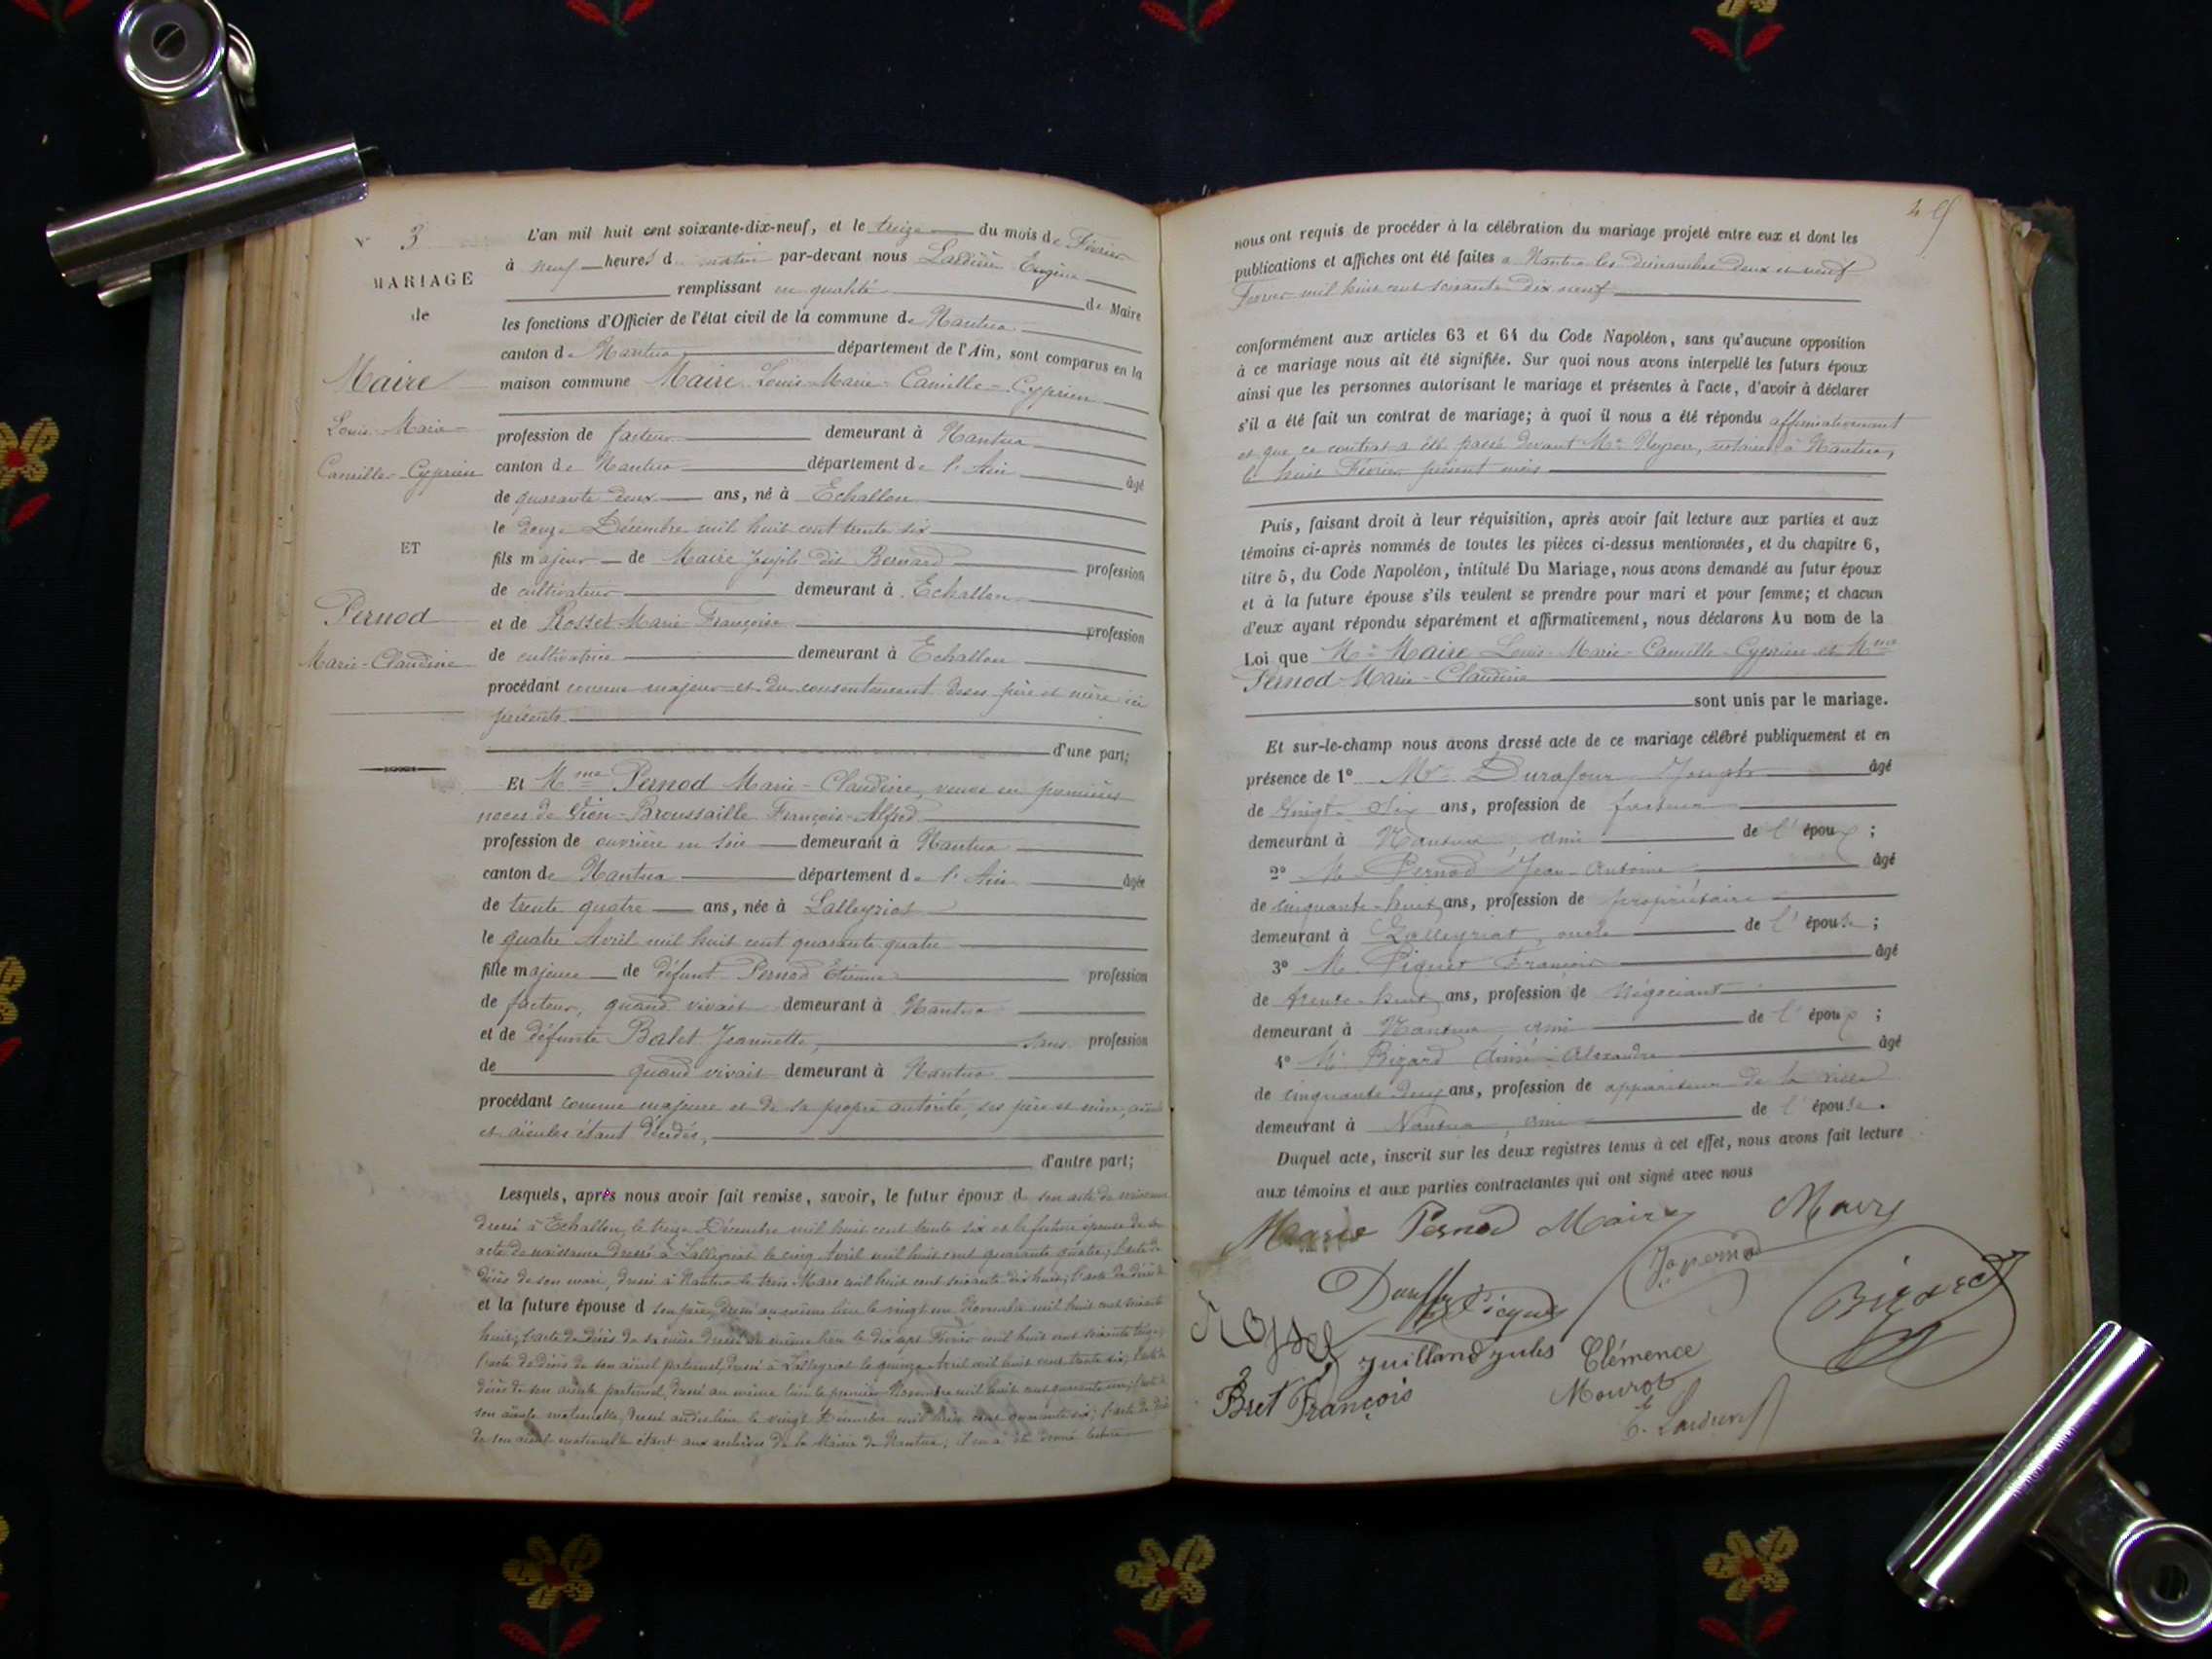 N° 3
MARIAGE
de
Maire
Louis-Marie-
Camille-Cyprien
ET
Pernod
Marie-Claudine
L'an mil huit cent soixante-dix-neuf, et le treize du mois de Février
à neuf heures d matin par-devant nous Eugène
remplissant en qualité de Maire
les fonctions d'Officier de l'état civil de la commune de Nantua
canton de Nantua département de l'Ain, sont comparus en la
maison commune Maire Louis-Marie-Camille-Cyprien
profession de facteur demeurant à Nantua
canton de Nantua département de l'Ain âgé
de quarante deux ans, né à Echallon
le douze Décembre mil huit cent trente six
fils majeur de Maire Joseph dit Bernard profession
de cultivateur demeurant à Echallon
et de Rosset Marie Françoise profession
de cultivatrice demeurant à Echallon
procédant comme majeur et du consentement de ses père et mère ici
présents
d'une part;
Et Mme Pernod Marie-Claudine, veuve en premières
noces de Vion-Broussaille François-Alfred
profession de ouvrière en soie demeurant à Nantua
canton de Nantua département de l'Ain âgée
de trente quatre ans, née à Lalleyriat
le quatre Avril mil huit cent quarante quatre
fille majeure de défunt Pernod Etienne profession
de facteur, quand vivait demeurant à Nantua
et de défunte Balet Jeannette, sans profession
de quand vivait demeurant à Nantua
procédant comme majeure et de sa propre autorité, ses père et mère, aïeuls
et aïeules étant décédés,
d'autre part;
Lesquels, après nous avoir fait remise, savoir, le futur époux d son acte de naissance
dressé à Echallon, le treize Décembre mil huit cent trente six et la future épouse de son
acte de naissance dressé à Lalleyriat le cinq Avril mil huit cent quarante quatre; l'acte de
décès de son mari, dressé à Nantua le trois Mars mil huit cent soixante dix huit; l'acte de décès de
et la future épouse d son père, dressé au même lieu le vingt un Novembre mil huit cent soixante
huit; l'acte de décès de sa mère dressé au même lieu le dix sept Février mil huit cent soixante treize;
l'acte de décès de son aïeul paternel, dressé à Lalleyriat le quinze Avril mil huit cent trente six; l'acte de
décès de son aïeule paternel, dressé au même lieu le premier Novembre mil huit cent quarante un; l'acte de
son aïeule maternelle, dressé audit lieu le vingt Décembre mil huit cent quarante six; l'acte de décès
de son aïeul maternelle étant aux archives de la Mairie de Nantua; il en a été donné lecture
nous ont requis de procéder à la célébration du mariage projeté entre eux et dont les
publications et affiches ont été faites à Nantua les dimanches deux et neuf
Février mil huit cent soixante dix neuf
conformément aux articles 63 et 64 du Code Napoléon, sans qu'aucune opposition
à ce mariage nous ait été signifiée. Sur quoi nous avons interpellé les futurs époux
ainsi que les personnes autorisant le mariage et présentes à l'acte, d'avoir à déclarer
s'il a été fait un contrat de mariage; à quoi il nous a été répondu affirmativement
et que ce contrat a été passé devant Me notaire à Nantua,
le huit Février présent mois
Puis, faisant droit à leur réquisition, après avoir fait lecture aux parties et aux
témoins ci-après nommés de toutes les pièces ci-dessus mentionnées, et du chapitre 6,
titre 5, du Code Napoléon, intitulé Du Mariage, nous avons demandé au futur époux
et à la future épouse s'ils veulent se prendre pour mari et pour femme; et chacun
d'eux ayant répondu séparément et affirmativement, nous déclarons Au nom de la
Loi que Mr Maire Louis-Marie-Camille-Cyprien et Mme
Pernod Marie-Claudine
sont unis par le mariage.
Et sur-le-champ nous avons dressé acte de ce mariage célébré publiquement et en
présence de 1° Mr Durafour Joseph âgé
de vingt-six ans, profession de facteur
demeurant à Nantua, ami de l'époux ;
2° Mr Pernod Jean-Antoine âgé
de cinquante-huit ans, profession de propriétaire
demeurant à Lalleyriat, oncle de l'épouse ;
3° Mr Piquet François âgé
de trente-huit ans, profession de Négociant
demeurant à Nantua, ami de l'époux ;
4° Mr Bizard Aimé-Alexandre âgé
de cinquante-deux ans, profession de appariteur de la ville
demeurant à Nantua, ami de l'épouse.
Duquel acte, inscrit sur les deux registres tenus à cet effet, nous avons fait lecture
aux témoins et aux parties contractantes qui ont signé avec nous
Marie Pernod Maire
Jn pernod
Bizard
Rosset
Juilland jules
Clémence
Mourot
Bret François